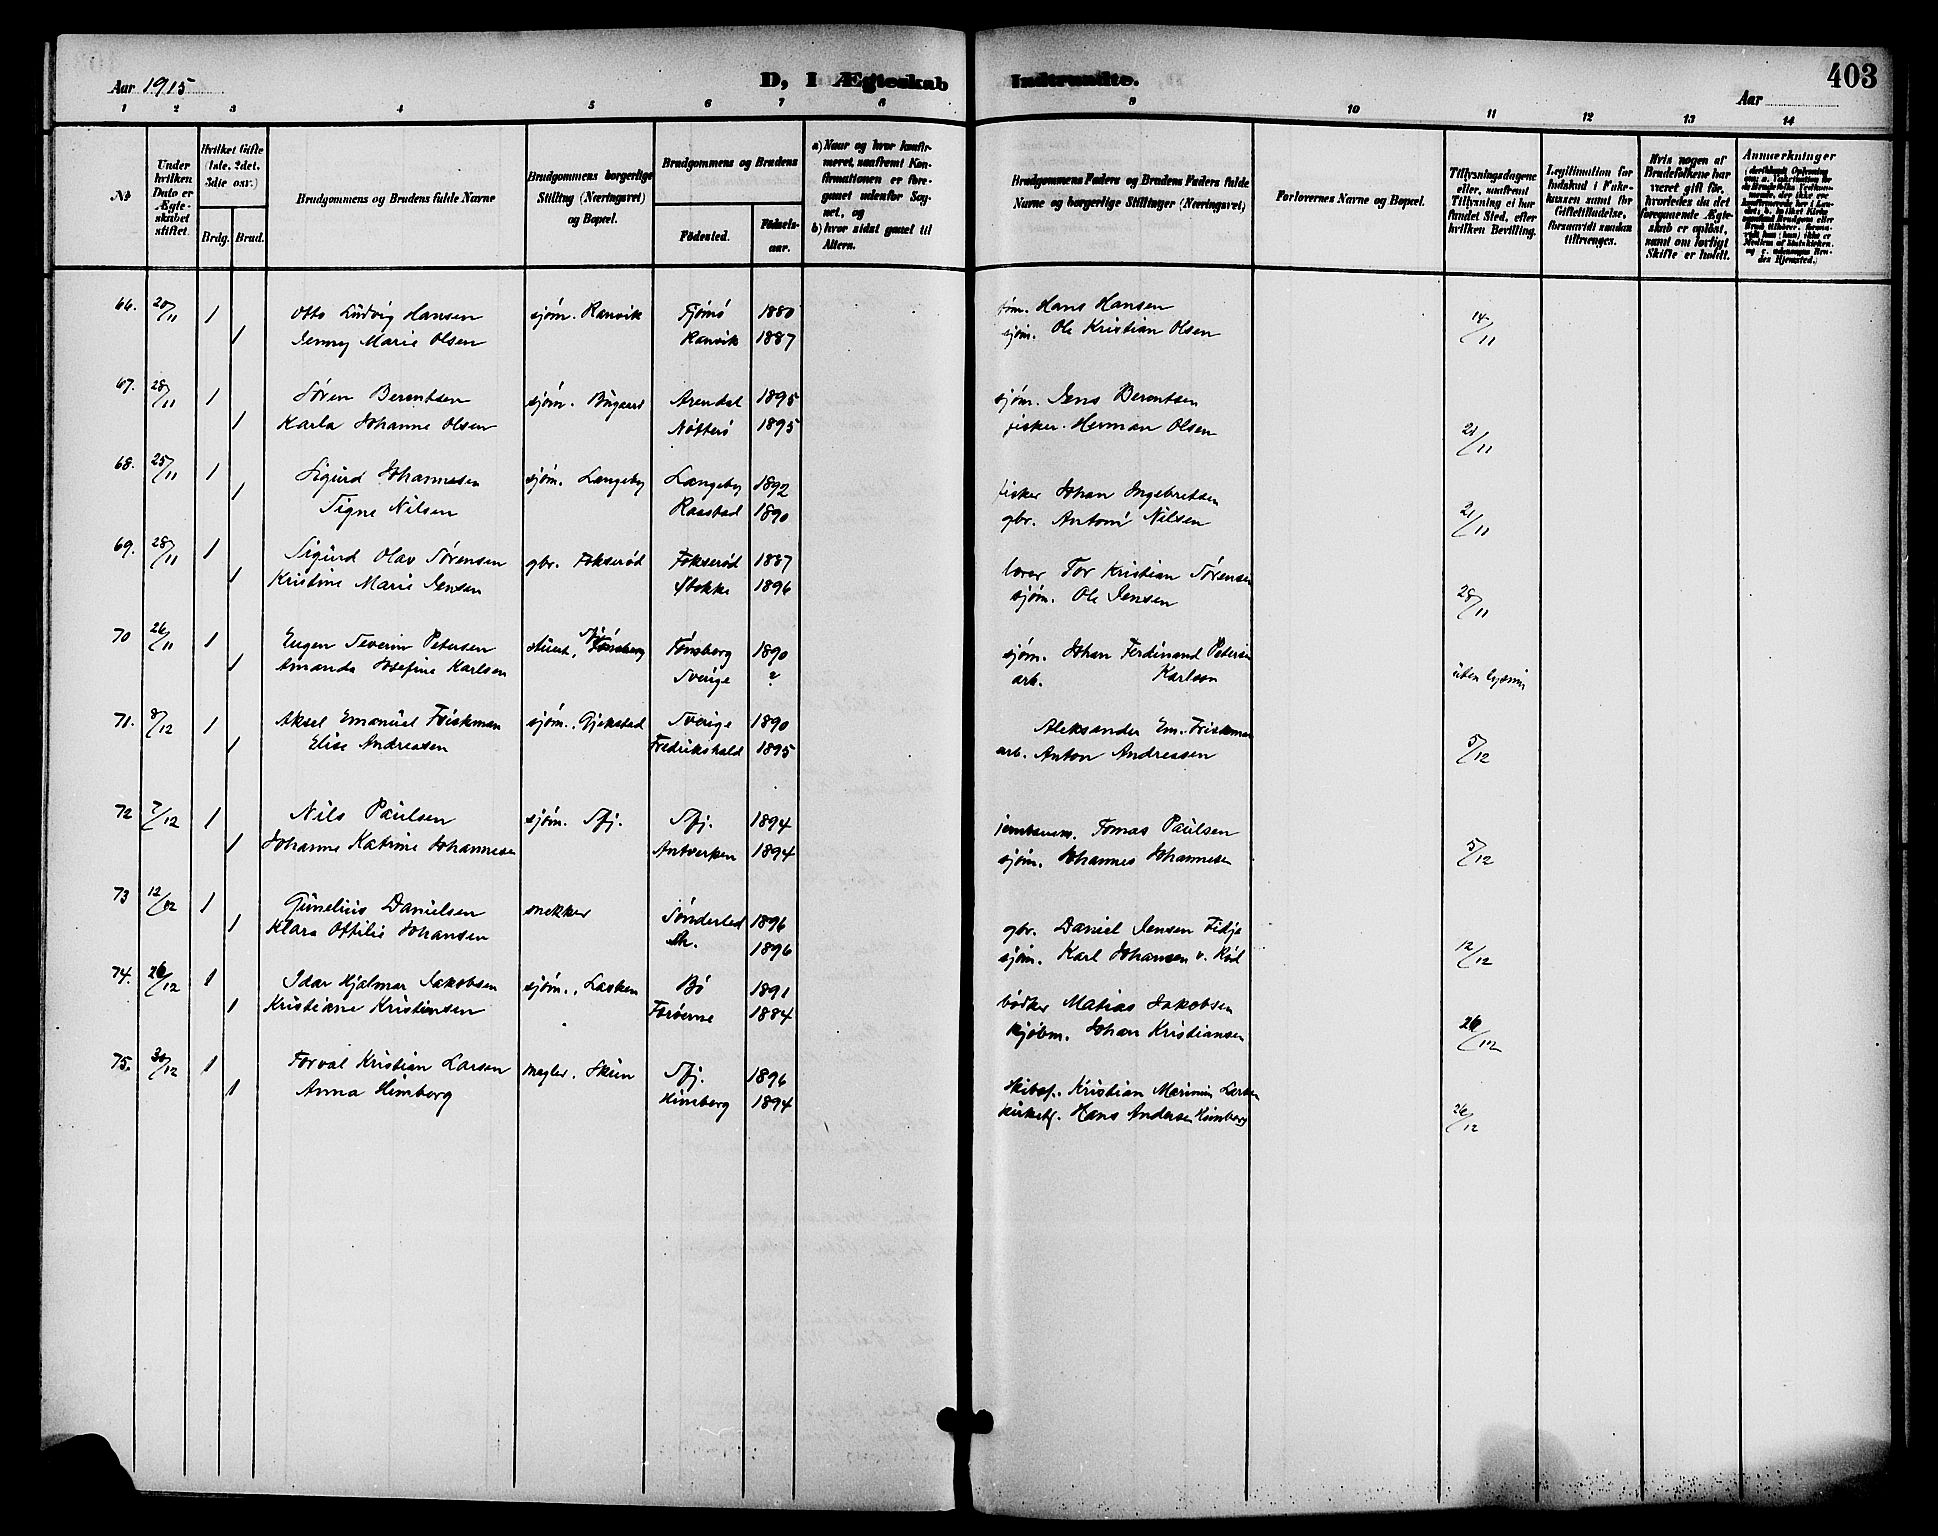 Aar 1915
D, I Ægteskab Indtraadte.
403
Aar
1 2 3 4 5 6 7 8 9 10 11 12 13 14
No
Under hvilken Dato er Ægteskabet stiftet.
Hvilket Gifte (1ste, 2det, 3die osv.)
Brdg. Brud.
Brudgommens og Brudens fulde Navne
Brudgommens borgerlige Stilling (Næringsvei) og Bopæl.
Brudgommens og Brudens
Födested.
Födselsaar.
a) Naar og hvor konfirmeret, naafremt Konfirmationen er foregaaet udenfor Sognet, og
b) hvor sidst gaaet til Alters.
Brudgommens Faders og Brudens Faders fulde Navne og borgerlige Stillinger (Næringsvei)
Forlovernes Navne og Bopæl.
Tillysningsdagene eller, saafremt Tillysning ei har fundet Sted, efter hvilken Bevilling.
Legitimation for Indskud i Enkekassen samt for Giftetilladelse, forsaavidt saadan tiltrænges.
Hvis nogen af Brudefolkene har været gift för, hvorledes da det foregaaende Ægteskab er oplöst, samt om lovligt Skifte er holdt.
Anmærkninger
66. 20/11 1 Otto Ludvig Hansen sjöm. Ranvik Tjömö 1880 sjöm. Hans Hansen 14/11
1 Jenny Marie Olsen Ranvik 1887 sjöm. Ole Kristian Olsen
67. 28/11 1 Sören Berentsen sjöm. Bugaard Arendal 1895 sjöm. Jens Berentsen
1 Karla Johanne Olsen Nötterö 1895 fisker. Herman Olsen 21/11
68. 25/11 1 Sigurd Johannesen sjöm. Langeby Langeby 1892 fisker Johan Ingebretsen
1 Signe Nilsen Raastad 1890 gbr. Anton Nilsen 21/11
69. 28/11 1 Sigurd Olav Sörensen gbr. Fokseröd Fokseröd 1887 lærer Tor Kristian Sörensen
1 Kristine Marie Jensen Stokke 1896 sjöm. Ole Jensen 28/11
70 26/11 1 Eugen Severin Petersen stuert, Sfj. Tönsberg Tönsberg 1890 sjöm. Johan Ferdinand Petersen
1 Amanda Josefine Karlsen Sverige ? arb. Karlson uten lysning
71. 8/12 1 Aksel Emanuel Friskman sjöm. Gjekstad Sverige 1890 Aleksander Em. Friskman
1 Elise Andreasen Fredrikshald 1895 arb. Anton Andreasen 5/12
72 7/12 1 Nils Paulsen sjöm. Sfj. Sfj. 1894 Tomas Paulsen
1 Johanne Katrine Johannesen Antverpen 1894 sjöm. Johannes Johannesen 5/12
73 12/12 1 Gunelius Danielsen snekker Sönderled 1896 gbr. Daniel Jensen Fidje
1 Klara Otilie Johansen Sh. 1896 sjöm. Karl Johansen v. Röd 12/12
74. 26/12 1 Idar Hjalmar Jakobsen sjöm., Lasken Bö 1891 bödker Matias Jakobsen
1 Kristiane Kristiansen Færöerne 1884 kjöbm. Johan Kristiansen 26/12
75. 30/12 1 Torval Kristian Larsen mægler. Skien Sfj. 1896 skibsf. Kristian Marinius Larsen
1 Anna Himberg Himberg 1894 kirketj. Hans Andersen Himberg 26/12